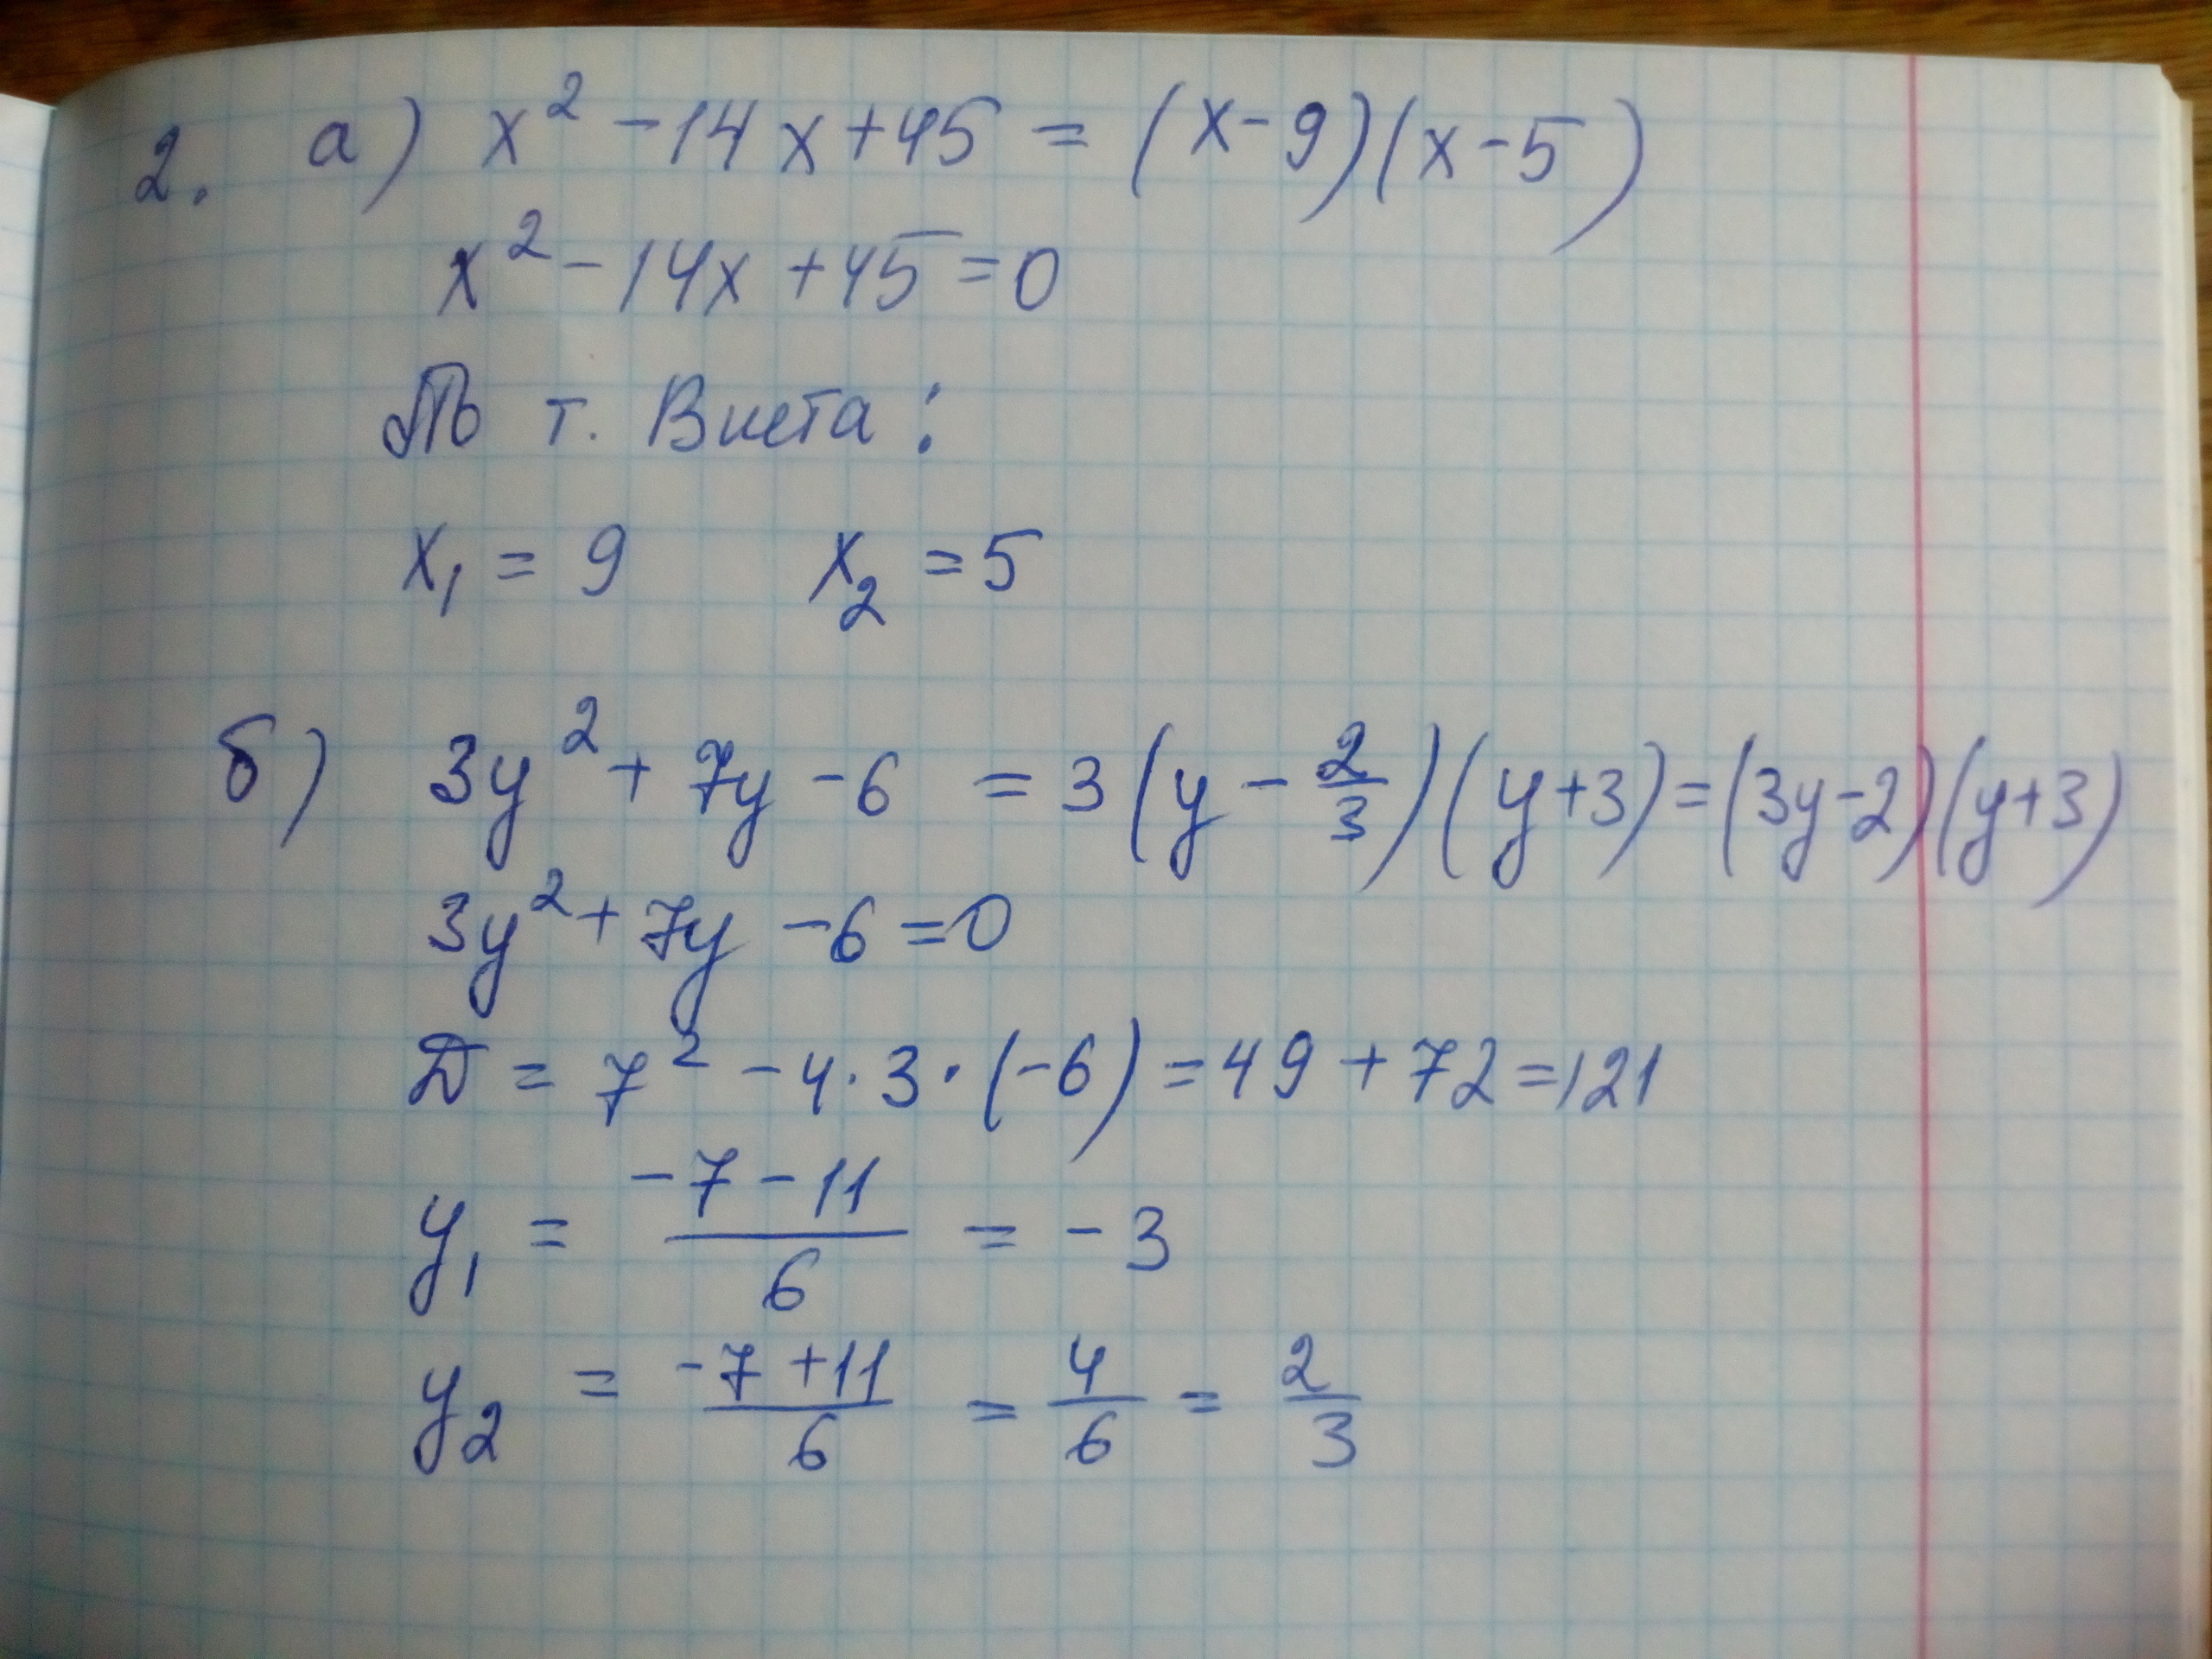 2. а) x² - 14x + 45 = (x - 9)(x - 5)
x² - 14x + 45 = 0
По т. Виета:
x₁ = 9 x₂ = 5
б) 3y² + 7y - 6 = 3(y - 2/3)(y + 3) = (3y - 2)(y + 3)
3y² + 7y - 6 = 0
D = 7² - 4·3·(-6) = 49 + 72 = 121
y₁ = (-7 - 11)/6 = -3
y₂ = (-7 + 11)/6 = 4/6 = 2/3